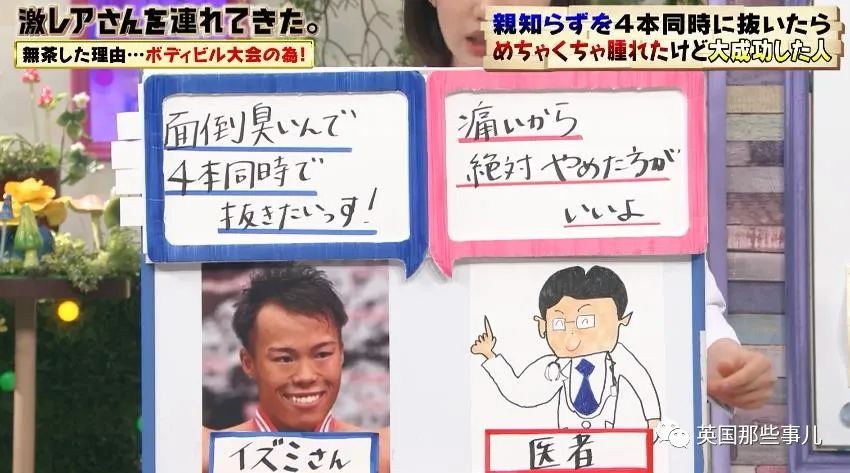 激レアさんを連れてきた。
無茶した理由…ボディビル大会の為!
親知らずを4本同時に抜いたら
めちゃくちゃ腫れたけど大成功した人
面倒臭いんで
4本同時で
抜きたいっす!
痛いから
絶対やめた方が
いいよ
イズミさん
医者
英国那些事儿